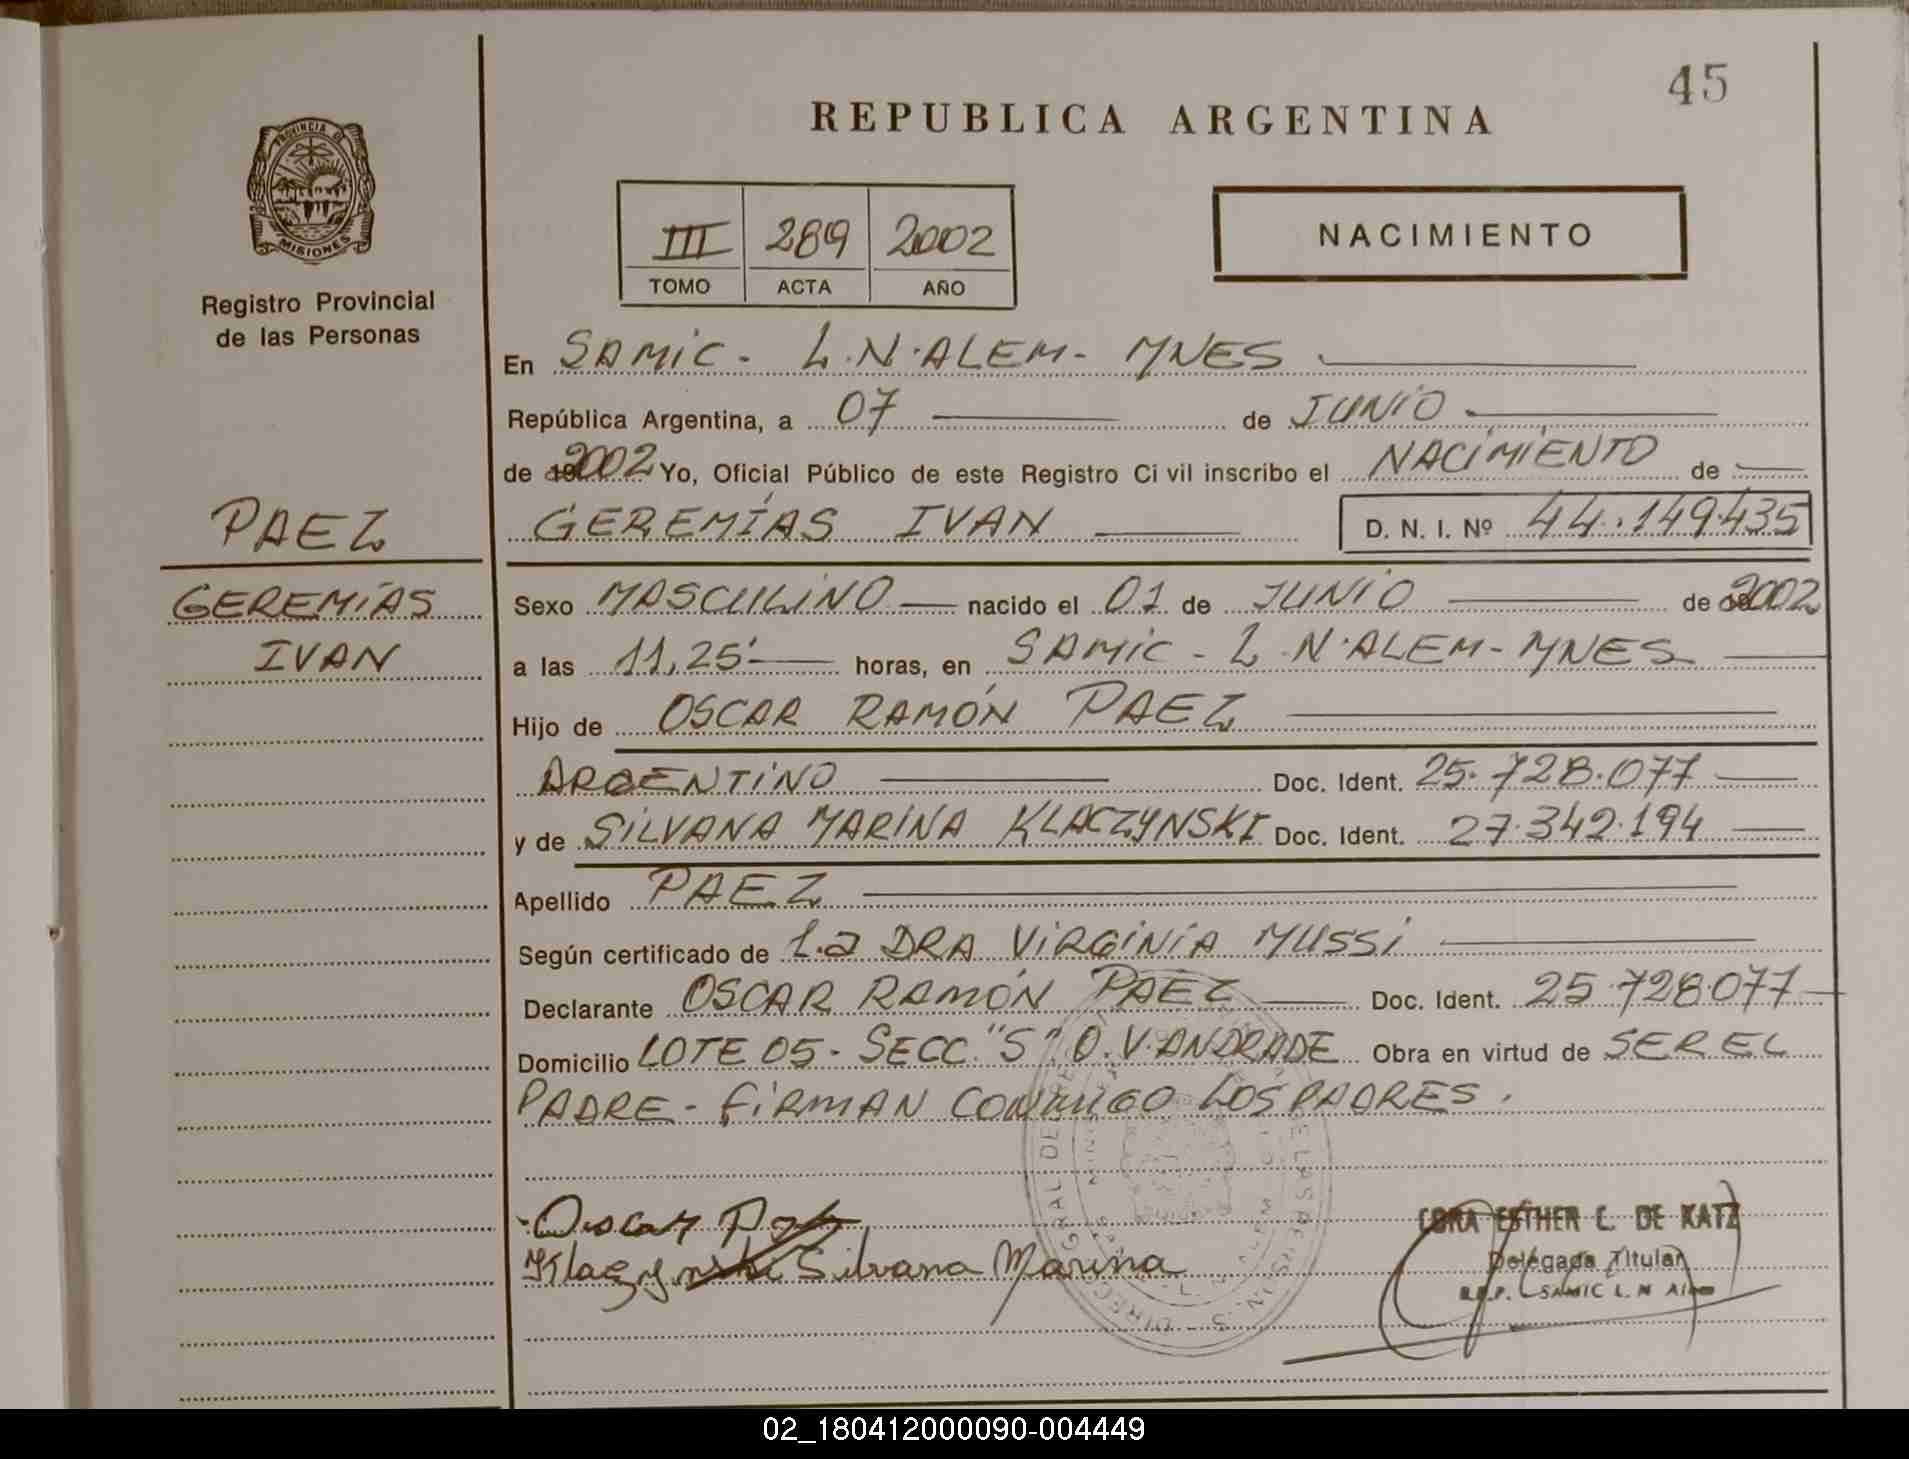 45
REPUBLICA ARGENTINA
PROVINCIA DE
MISIONES
Registro Provincial
de las Personas
III 289 2002
TOMO ACTA AÑO
NACIMIENTO
En SAMIC - L.N.ALEM - MNES
República Argentina, a 07 de JUNIO
de 2002 Yo, Oficial Público de este Registro Ci vil inscribo el NACIMIENTO de
PAEZ
GEREMÍAS IVAN D. N. I. Nº 44.149.435
GEREMÍAS
IVAN
Sexo MASCULINO nacido el 01 de JUNIO de 2002
a las 11,25' horas, en SAMIC - L.N.ALEM - MNES
Hijo de OSCAR RAMÓN PAEZ
ARGENTINO Doc. Ident. 25.728.077
y de SILVANA MARINA KLACZYNSKI Doc. Ident. 27.342.194
Apellido PAEZ
Según certificado de La DRA VIRGINIA MUSSI
Declarante OSCAR RAMÓN PAEZ Doc. Ident. 25.728.077
Domicilio LOTE 05 - SECC. "S" O.V.ANDRADE Obra en virtud de SER EL
PADRE - FIRMAN CONMIGO LOS PADRES.
Oscar
Klaczynski Silvana Marina
CORA ESTHER C. DE KATZ
Delegada Titular
R.P.P. SAMIC L. N Alem
02_180412000090-004449